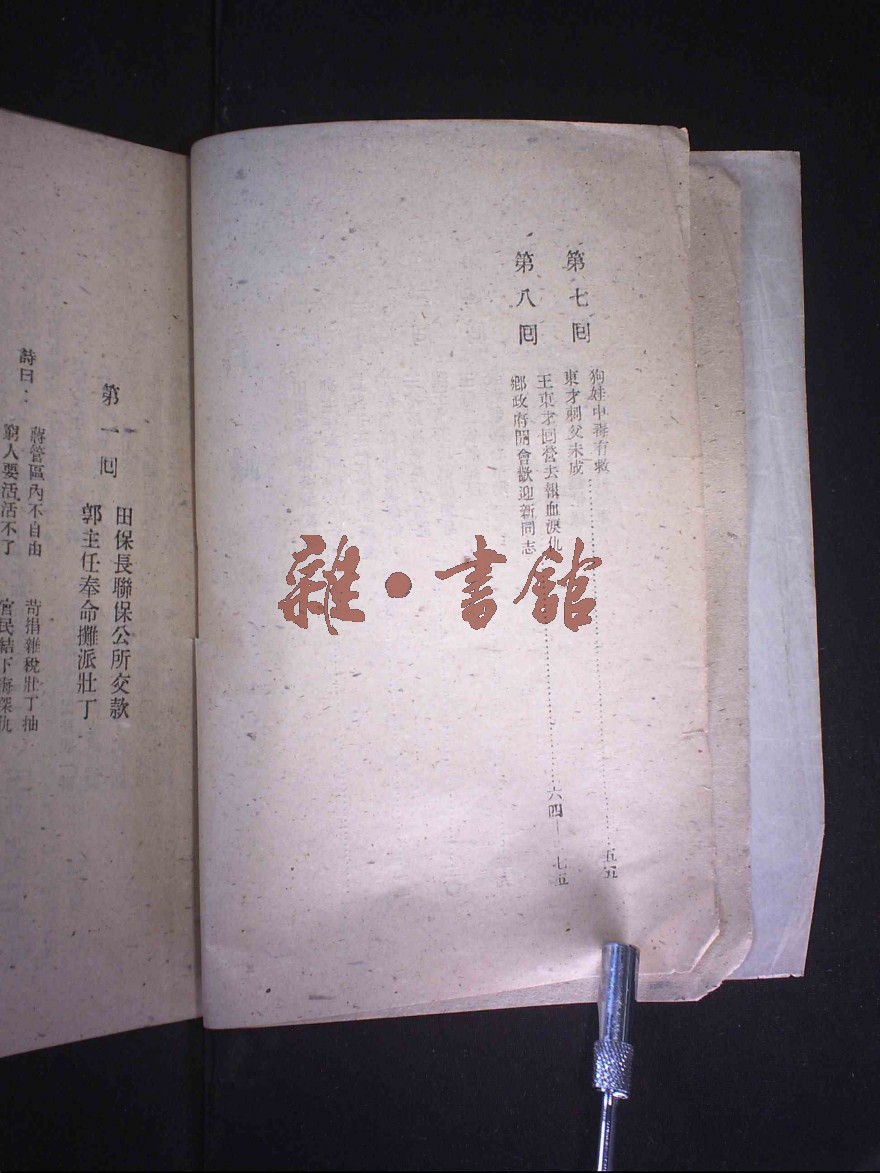 第七回
狗娃中毒有救
東才刺父未成
五五
第八回
王東才回營去報血淚仇
鄉政府開會歡迎新同志
六四—七五
雜•書館
第一回
田保長聯保公所交款
郭主任奉命攤派壯丁
詩曰：
蔣管區內不自由 苛捐雜稅壯丁抽
窮人要活活不了 官民結下海深仇